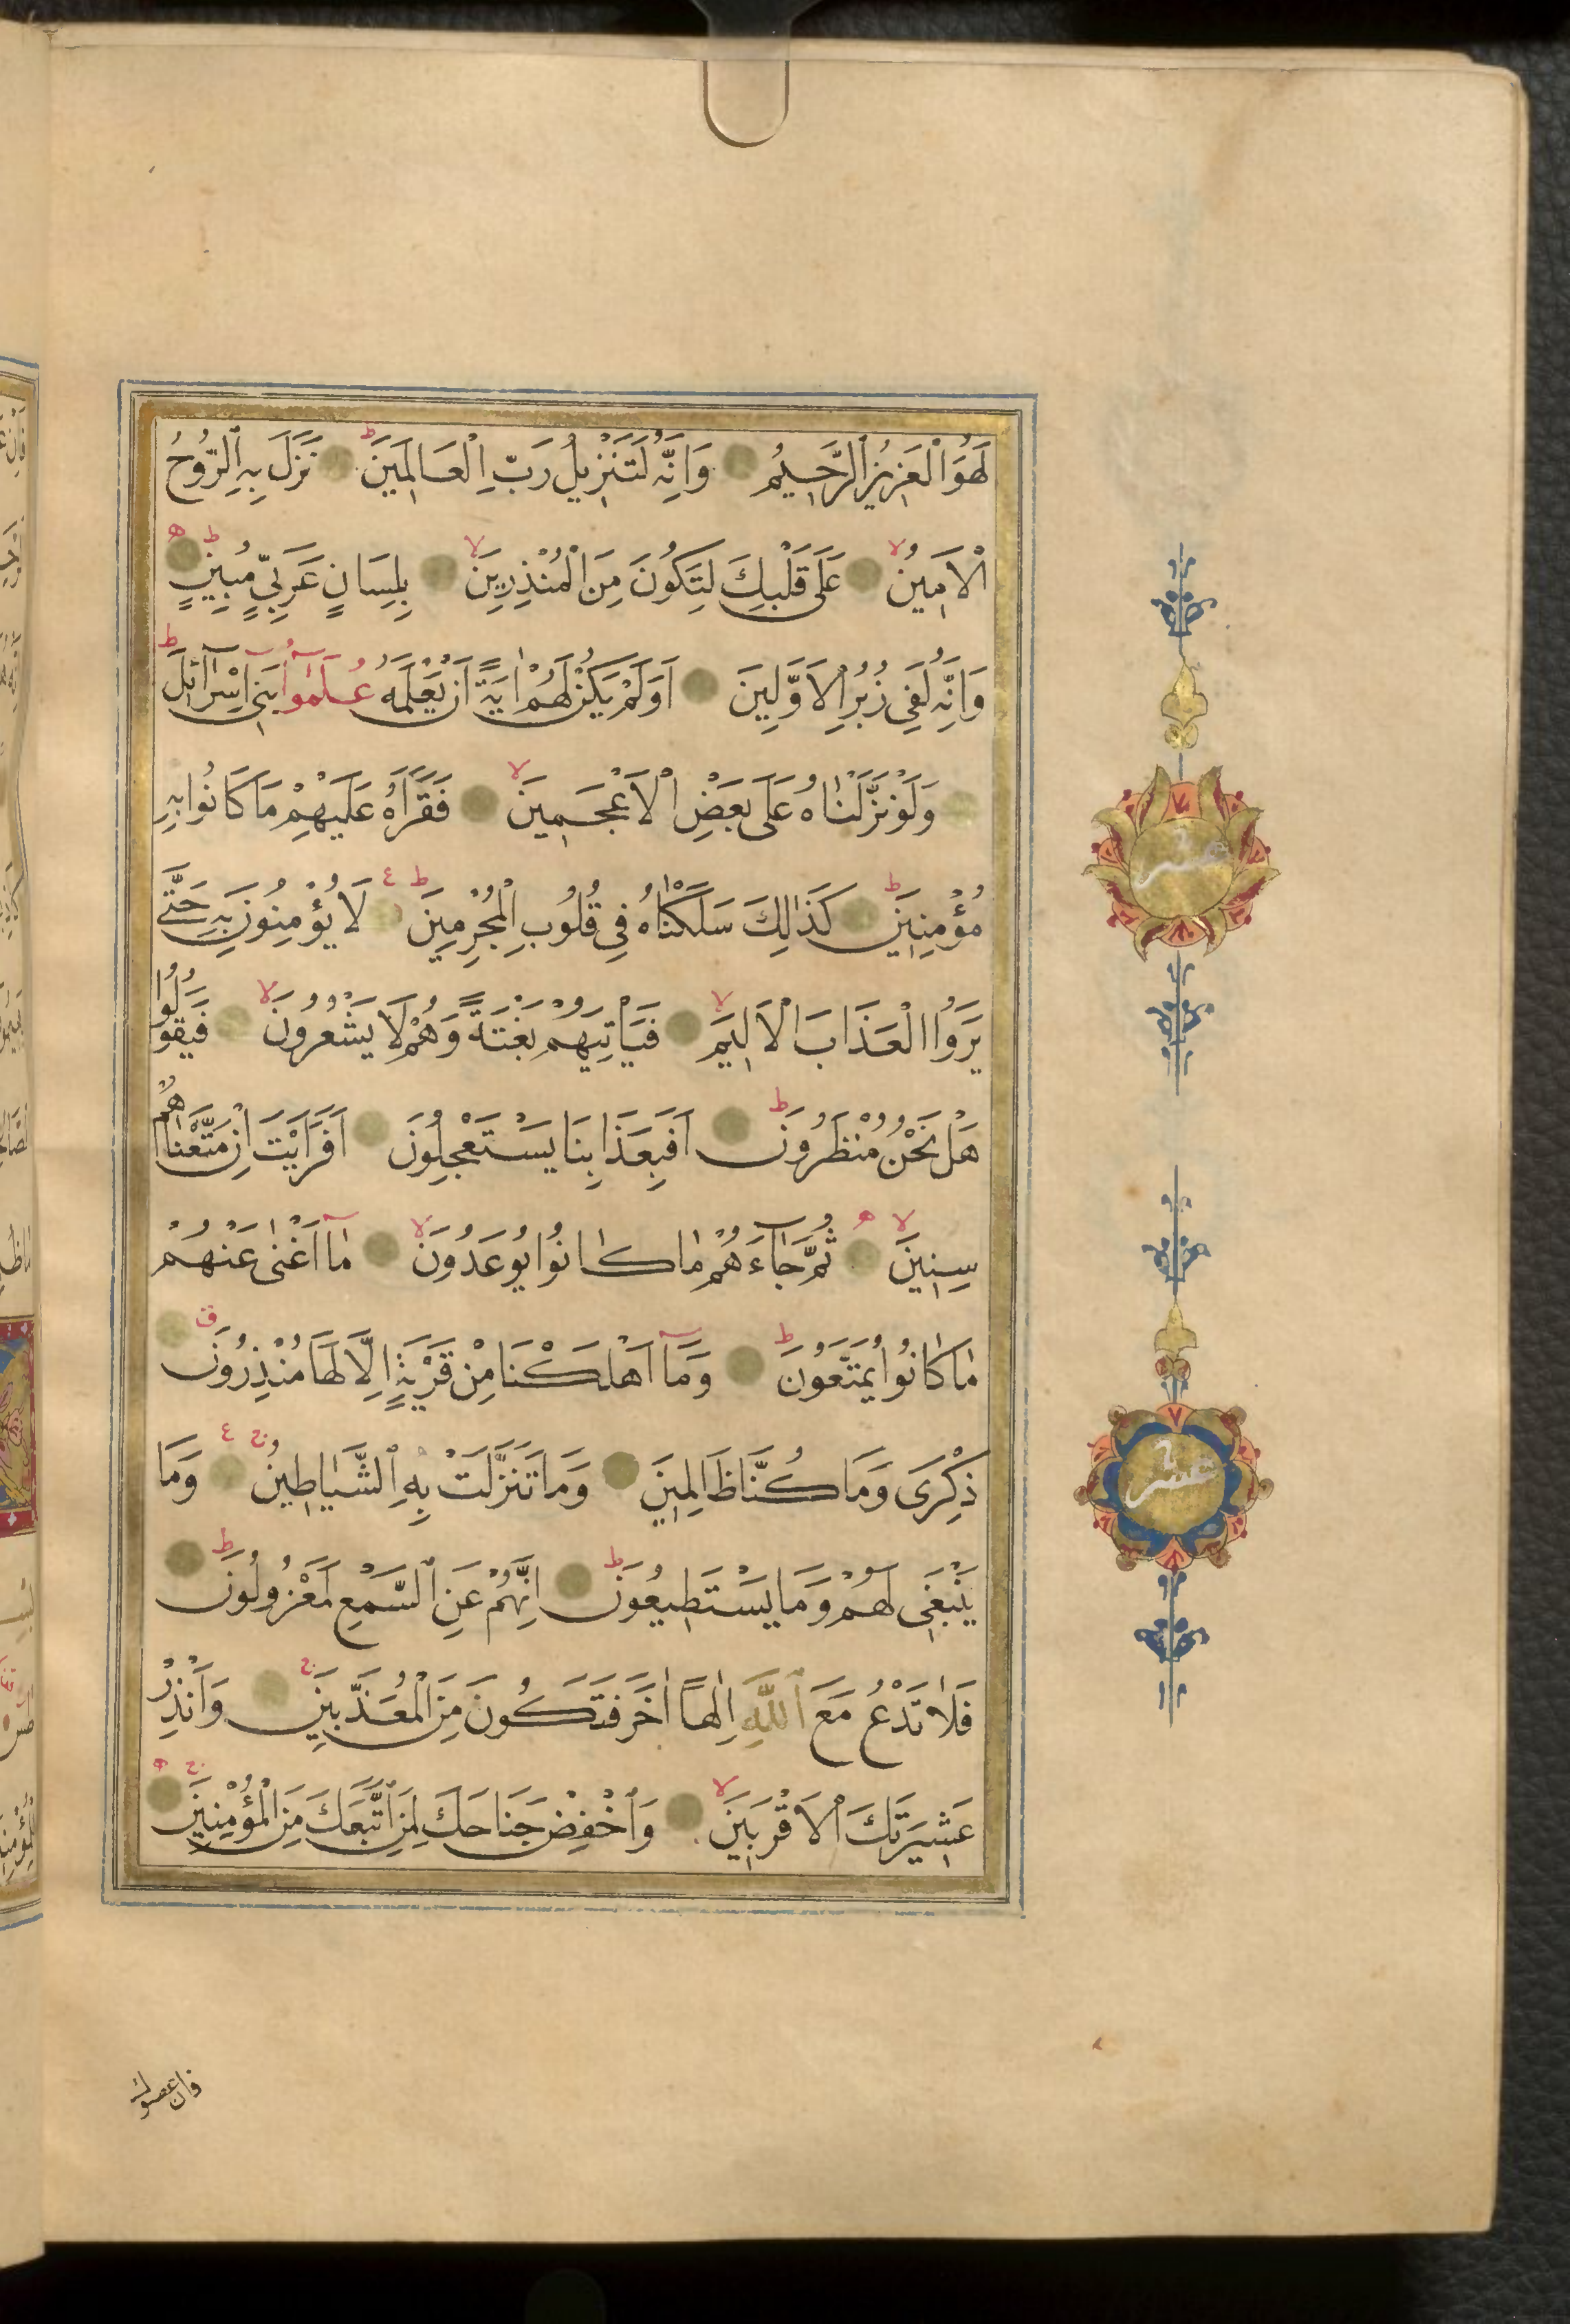 لَهُوَ الْعَزِيزُ الرَّحِيمُ وَاِنَّهُ لَتَنْزِيلُ رَبِّ الْعَالَمِينَ نَزَلَ بِهِ الرُّوحُ
الْاَمِينُ عَلَى قَلْبِكَ لِتَكُونَ مِنَ الْمُنْذِرِينَ بِلِسَانٍ عَرَبِيٍّ مُبِينٍ
وَاِنَّهُ لَفِي زُبُرِ الْاَوَّلِينَ اَوَلَمْ يَكُنْ لَهُمْ اٰيَةً اَنْ يَعْلَمَهُ عُلَمٰۤؤُا بَنِي اِسْرَآئِلَ
وَلَوْ نَزَّلْنَاهُ عَلَى بَعْضِ الْاَعْجَمِينَ فَقَرَاَهُ عَلَيْهِمْ مَا كَانُوا بِهِ
مُؤْمِنِينَ كَذَالِكَ سَلَكْنَاهُ فِي قُلُوبِ الْمُجْرِمِينَ لَا يُؤْمِنُونَ بِهِ حَتَّى
يَرَوُا الْعَذَابَ الْاَلِيمَ فَيَاْتِيَهُمْ بَغْتَةً وَهُمْ لَا يَشْعُرُونَ فَيَقُولُوا
هَلْ نَحْنُ مُنْظَرُونَ اَفَبِعَذَابِنَا يَسْتَعْجِلُونَ اَفَرَاَيْتَ اِنْ مَتَّعْنَاهُمْ
سِنِينَ ثُمَّ جَآءَهُمْ مَا كَانُوا يُوعَدُونَ مَا اَغْنٰى عَنْهُمْ
مَا كَانُوا يُمَتَّعُونَ وَمَآ اَهْلَكْنَا مِنْ قَرْيَةٍ اِلَّا لَهَا مُنْذِرُونَ
ذِكْرَى وَمَا كُنَّا ظَالِمِينَ وَمَا تَنَزَّلَتْ بِهِ الشَّيَاطِينُ وَمَا
يَنْبَغِي لَهُمْ وَمَا يَسْتَطِيعُونَ اِنَّهُمْ عَنِ السَّمْعِ لَمَعْزُولُونَ
فَلَا تَدْعُ مَعَ اللّٰهِ اِلٰهًا اٰخَرَ فَتَكُونَ مِنَ الْمُعَذَّبِينَ وَاَنْذِرْ
عَشِيرَتَكَ الْاَقْرَبِينَ وَاخْفِضْ جَنَاحَكَ لِمَنِ اتَّبَعَكَ مِنَ الْمُؤْمِنِينَ
عشر
عشر
فان عصوك